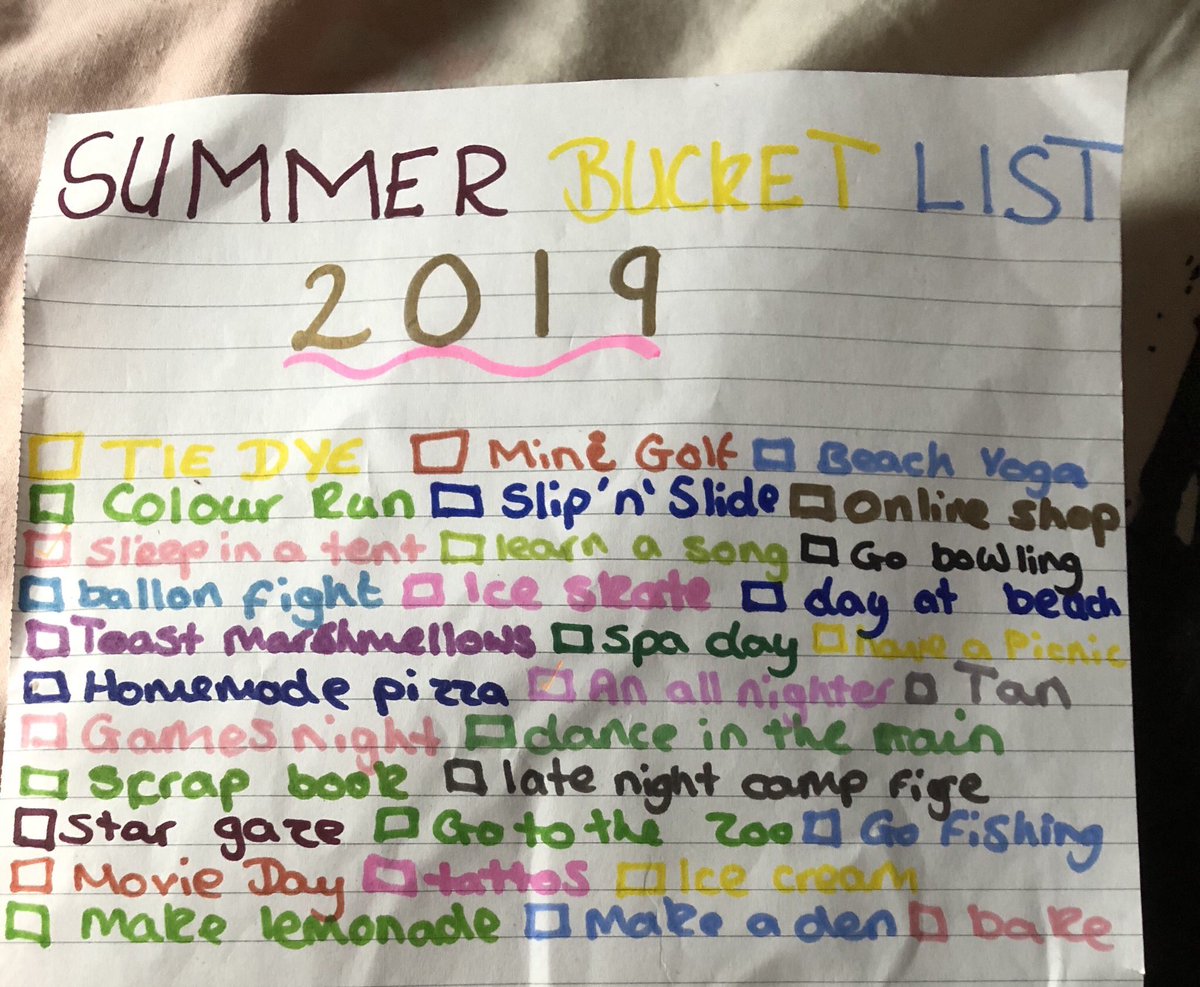 SUMMER BUCKET LIST
2019
TIE DYE Mini Golf Beach Yoga
Colour Run Slip'n'Slide Online shop
Sleep in a tent learn a song Go bowling
ballon fight Ice skate day at beach
Toast Marshmellows Spa day have a Picnic
Homemade pizza An all nighter Tan
Games night dance in the rain
Scrap book late night camp fire
Star gaze Go to the Zoo Go Fishing
Movie Day tattos Ice cream
Make lemonade Make a den bake